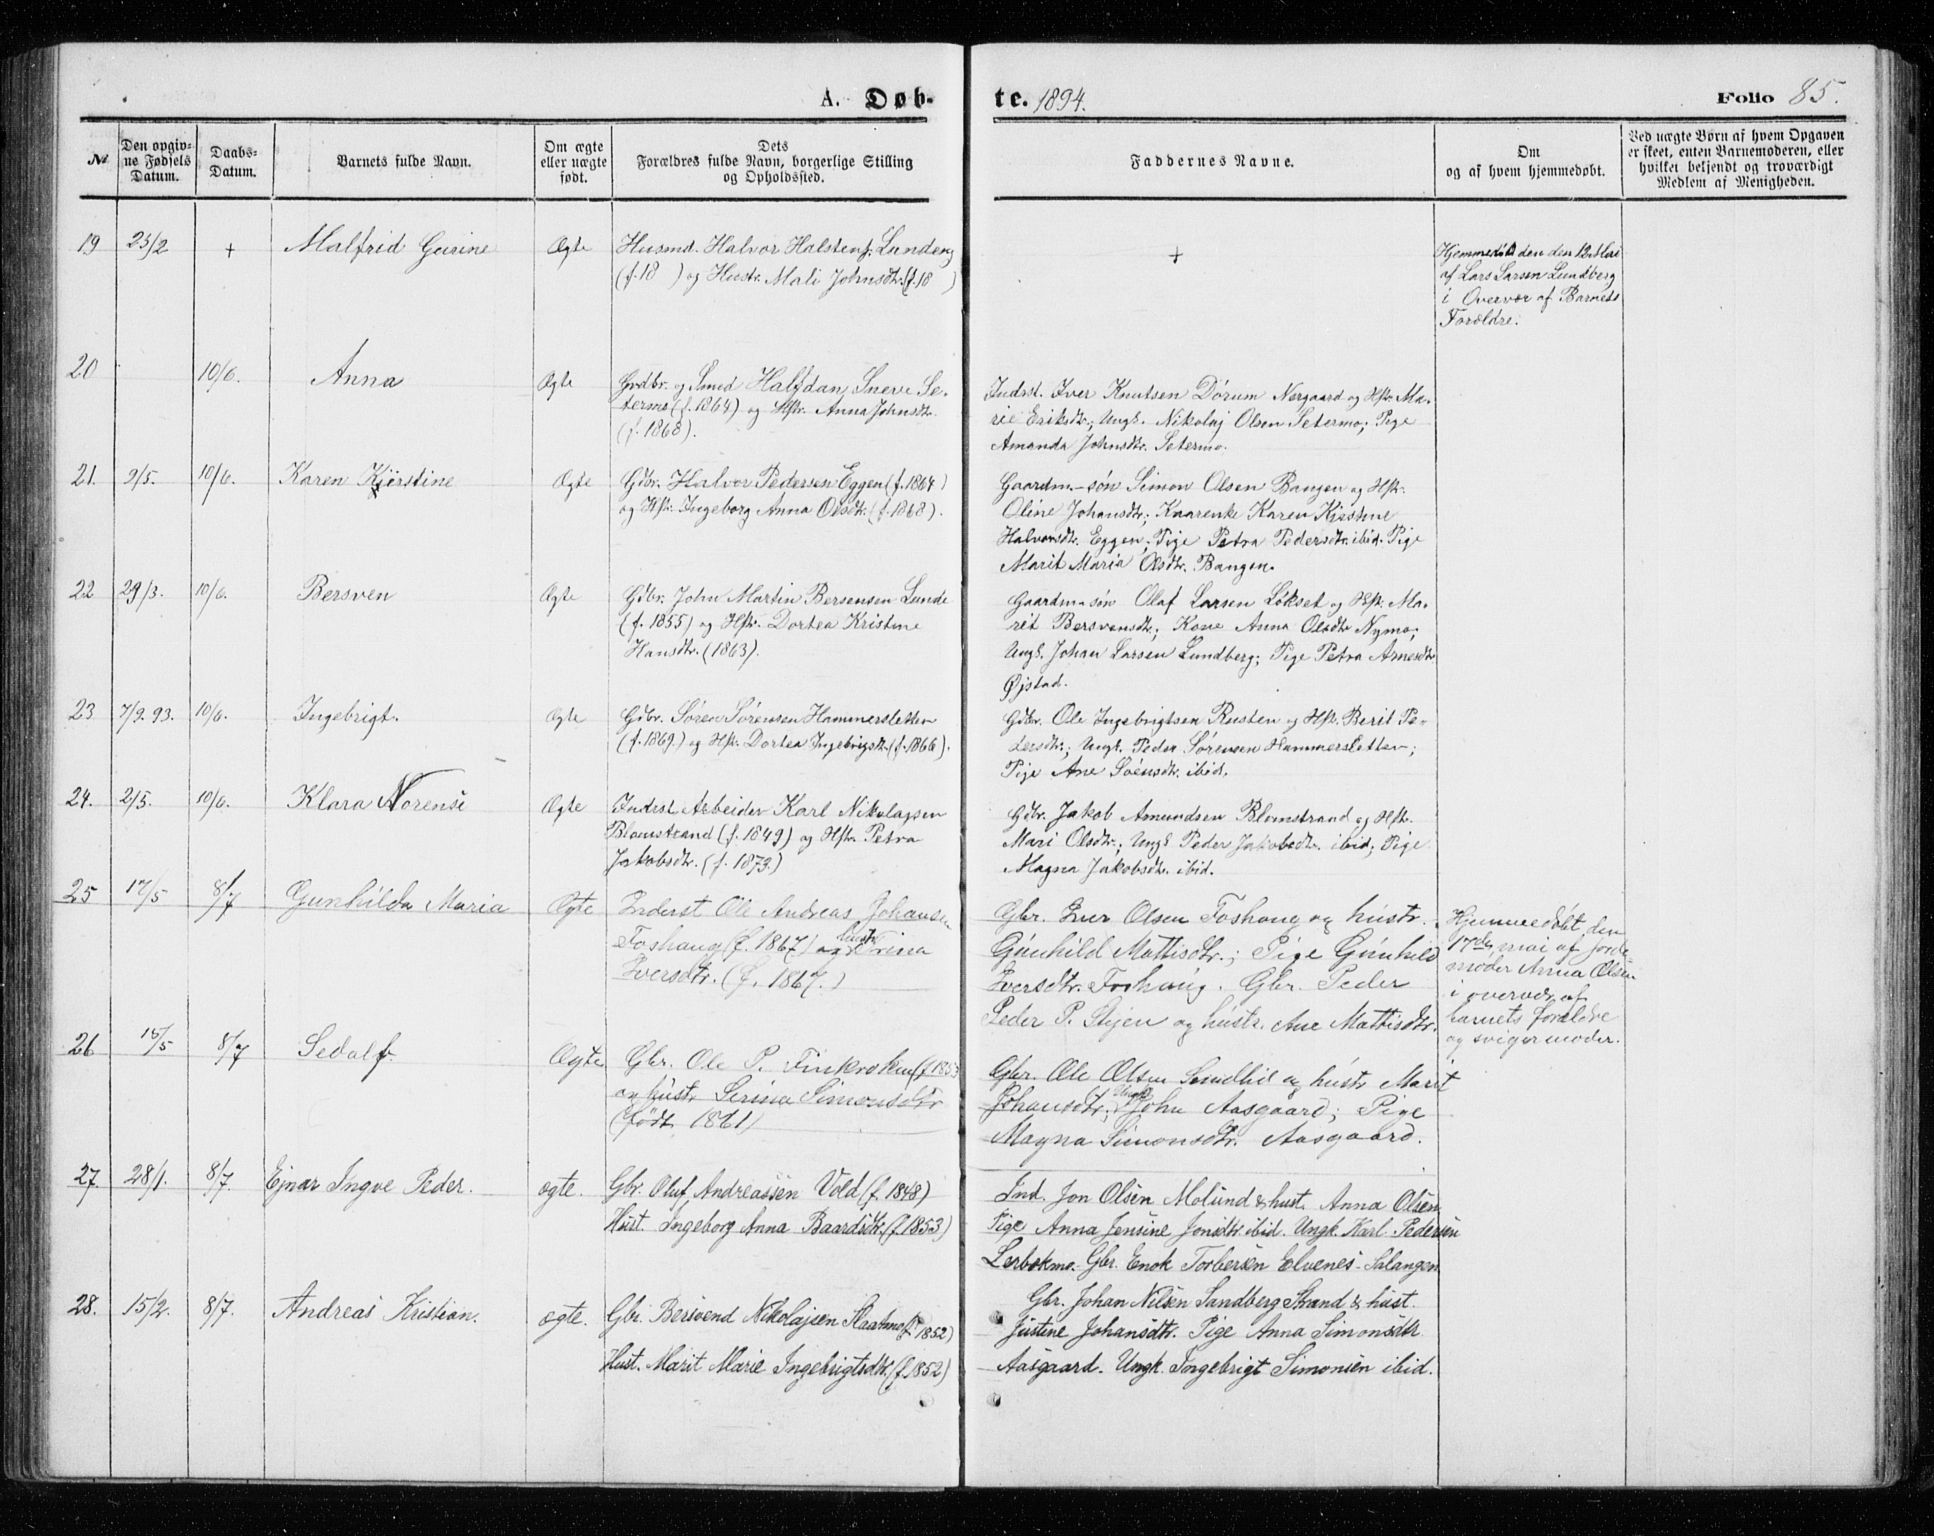 A. Døb-
te. 1894.
Folio 85.
№
Den opgiv-
ne Fødsels
Datum.
Daabs-
Datum.
Barnets fulde Navn.
Om ægte
eller uægte
født.
Dets
Forældres fulde Navn, borgerlige Stilling
og Opholdssted.
Faddernes Navne.
Om
og af hvem hjemmedøbt.
Ved uægte Børn af hvem Opgaven
er skeet, enten Barnemoderen, eller
hvilket bekjendt og troværdigt
Medlem af Menigheden.
19 25/2 + Malfrid Gurine Ægte
Husmd. Halvor Halstens. Lundberg
(f. 18 ) og Hustr. Mali Johnsdtr. (f. 18 )
+
Hjemmedøbt den 12 Mai
af Lars Larsen Lundberg
i Overvær af Barnets
Forældre.
20 10/6. Anna Ægte
Grdbr. og Smed Halfdan Sneve Se-
termo (f. 1864) og Hstr. Anna Johnsdtr.
(f. 1868).
Inderst. Iver Knutsen Dørum Norgaard og Hstr. Ma-
rie Eriksdtr.; Ungk. Nikolaj Olsen Setermo; Pige
Amanda Johnsdtr. Setermo.
21. 9/5. 10/6. Karen Kjerstine Ægte
Gdbr. Halvor Pedersen Eggen (f. 1864)
og Hstr. Ingeborg Anna Olsdtr. (f. 1868).
Gaardm-søn Simon Olsen Bangen og Hstr.
Oline Johansdtr; Kaarenke Karen Kjerstine
Halvorsdtr. Eggen; Pige Petra Pedersdtr. ibid. Pige
Marit Maria Olsdtr. Bangen.
22 29/3. 10/6. Bersven Ægte
Gdbr. John Martin Bersensen Lunde
(f. 1855) og Hstr. Dortea Kristine
Hansdtr. (1863).
Gaardm-søn Olaf Larsen Løkset og Hstr. Ma-
rit Bersvensdtr; Kone Anna Olsdtr Nymo;
Ungk. Johan Larsen Lundberg; Pige Petra Arnesdtr
Øjstad.
23 7/9. 93. 10/6. Ingebrigt. Ægte
Gdbr. Søren Sørensen Hammersletten
(f. 1869.) og Hstr. Dortea Ingebrigtsdtr. (f. 1866).
Gdbr. Ole Ingebrigtsen Rusten og Hstr. Berit Pe-
dersdtr.; Ungk. Peder Sørensen Hammersletten;
Pige Ane Soensdtr. ibid.
24. 2/5. 10/6. Klara Norensi Ægte
Inderst Arbeider Karl Nikolajsen
Blomstrand (f. 1849) og Hstr. Petra
Jakobsdtr. (f. 1873.)
Gdbr. Jakob Amundsen Blomstrand og Hstr.
Mari Olsdtr.; Ungk Peder Jakobsdtr. ibid; Pige
Magna Jakobsdtr. ibid.
25 17/5 8/7 Gunhilda Maria Ægte
Inderst Ole Andreas Johansen
Foshaug (f. 1867) og hustr Trina
Iversdtr. (f. 1867.)
Gbr. Iver Olsen Foshaug og hustr.
Gunhild Mattisdtr.; Pige Gunhild
Iversdtr. Foshaug. Gbr. Peder
Peder P. Stijen og hustr. Ane Mattisdtr.
Hjemmedøbt den
17de mai af Jorde-
moder Anna Olsen
i overvær af
barnets forældre
og svigermoder.
26 15/5 8/7 Sedolf Ægte
Gbr. Ole P. Finkroken (f 1853
og hustr Serina Simonsdtr
(født 1861)
Gbr. Ole Olsen Sandhei og hustr Marit
Johansdtr; Ungk. John Aasgaard; Pige
Magna Simonsdtr. Aasgaard.
27. 28/1. 8/7. Ejnar Ingve Peder. ægte.
Gbr. Oluf Andreassen Vold (f. 1848)
Hust. Ingeborg Anna Baardsdtr. (f. 1853)
Ind. Jon Olsen Molund & hust. Anna Olsen
Pige Anna Jensine Jonsdtr. ibid. Ungk. Karl Pedersen
Lerbekmo. Gbr. Enok Torbersen Elvenes - Salangen
28. 15/2. 8/7. Andreas Kristian. ægte.
Gbr. Bersvend Nikolajsen Flaatmo (f. 1852)
Hust. Marit Marie Ingebrigtsdtr. (f. 1852)
Gbr. Johan Nilsen Sandberg Strand & hust.
Justine Johansdtr. Pige Anna Simonsdtr
Aasgaard. Ungk. Ingebrigt Simonsen ibid.